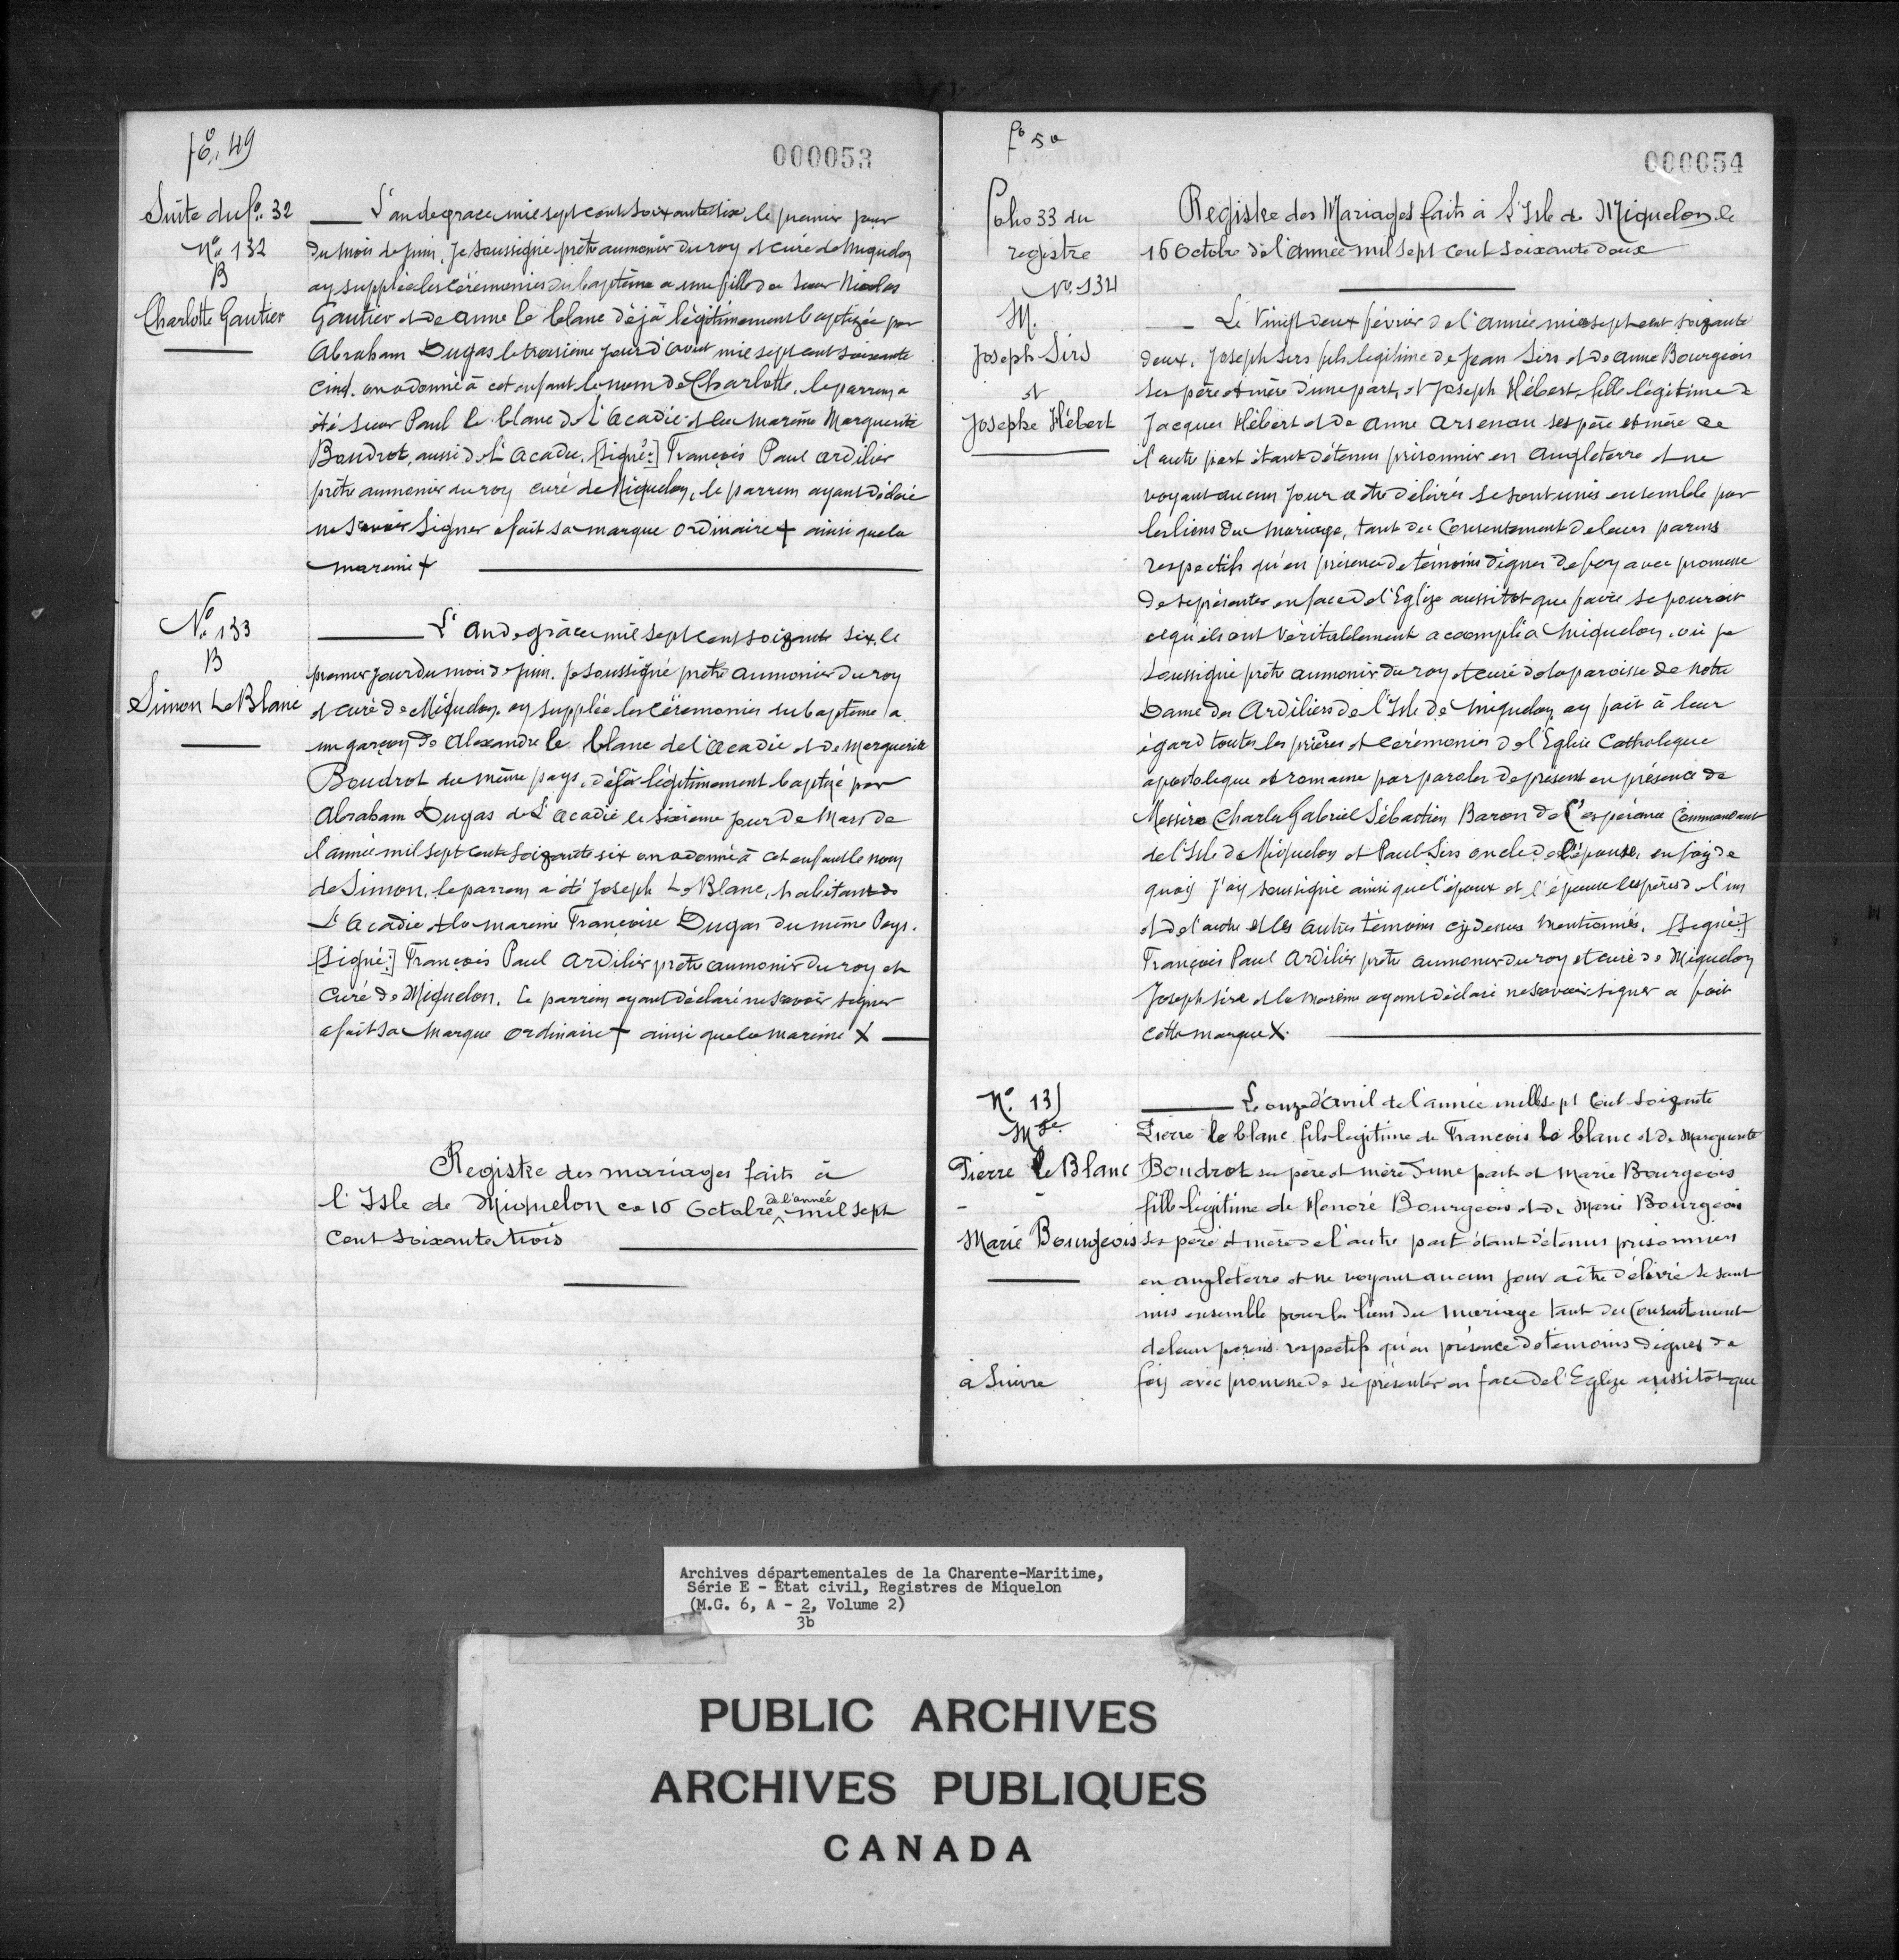 fo. 49
000053
Suite du fo. 32
No. 132
B
Charlotte Gautier
L'an de grace mil sept cent soixante six le premier jour
du mois de juin, Je soussigné prêtre aumonier du roy et curé de Miquelon
ay supplée les cérémonies du baptême a une fille de Sieur Nicolas
Gautier et de anne le blanc déjà légitimement baptizée par
Abraham Dugas le troisième jour d'avril mil sept cent soixante
cinq. on a donné à cet enfant le nom de Charlotte, le parrein a
été sieur Paul le blanc de L'acadie et la mareine Marguerite
Boudrot, aussi de L'acadie. [Signé:] François Paul ardilier
prêtre aumonier du roy curé de Miquelon, le parrein ayant déclaré
ne savoir signer a fait sa marque ordinaire + ainsi que la
mareine +
No. 133
B
Simon Le Blanc
L'An de grâce mil sept cent soizante six, le
premier jour du mois de juin. je soussigné prêtre aumonier du roy
et curé de Miquelon. ay supplée les cérémonies du baptême a
un garçon de Alexandre le blanc de l'acadie et de Marguerite
Boudrot du même pays, déjà légitimement baptizé par
Abraham Dugas de L'acadie le sixieme jour de Mars de
l'année mil sept cent soizante six on a donné à cet enfant le nom
de Simon, le parrein a été Joseph Le Blanc, habitant de
L'Acadie et la mareine Françoise Dugas du même Pays.
[Signé:] François Paul Ardilier prêtre aumonier du roy et
Curé de Miquelon. Le parrein ayant déclaré ne savoir signer
a fait sa marque ordinaire + ainsi que la mareine X
Registre des mariages faits à
l'Isle de Miquelon ce 16 Octobre de l'année mil sept
cent soixante trois
fo 50
000054
Folio 33 du
registre
No. 134
M.
Joseph Sire
et
Josephe Hébert
Registre des Mariages faits à l'Isle de Miquelon le
16 Octobre de l'année mil sept cent soixante deux
Le Vingt deux février de l'année mil sept cent soizante
deux, Joseph Sire fils legitime de Jean Sire et de anne Bourgeois
ses père et mère d'une part, et Joseph Hébert, fille légitime de
Jacques Hébert et de Anne Arsenau ses père et mère de
l'autre part étant détenus prisonnier en Angleterre et ne
voyant aucun jour a être délivrés se sont unis ensemble par
les liens du mariage, tant du Consentement de leurs parens
respectifs qu'en présence de témoins dignes de foy avec promesse
de se présenter en face de l'Eglize aussitot que faire se pouroit
ce qu'ils ont véritablement accompli a Miquelon, où je
soussigné prêtre aumonier du roy et curé de la paroisse de Notre
Dame des Ardiliers de l'Isle de Miquelon, ay fait à leur
égard toutes les prières et cérémonies de l'Eglise Catholeque
apostoleque et romaine par paroles de present en présence de
Messire Charles Gabriel Sébastien Baron de L'espérance Commandant
de l'Isle de Miquelon et Paul Sire oncle de l'épouse, en foy de
quoy j'ay soussigné ainsi que l'époux et l'épouse les pères de l'un
et de l'autre et les autres témoins cy dessus mentionnés. [Signé:]
François Paul Ardilier prêtre aumonier du roy et curé de Miquelon
Joseph Sire et la mareine ayant déclaré ne savoir signer a fait
cette marque X.
No. 135
Mge.
Pierre Le Blanc
-
Marie Bourgeois
Le onze d'avril de l'année mille sept Cent soizante
Pierre le blanc fils legitime de François le blanc et de Marguerite
Boudrot ses père et mère d'une part et Marie Bourgeois
fille légitime de Honoré Bourgeois et de Marie Bourgeois
ses père et mère de l'autre part étant détenus prisonniers
en angleterre et ne voyant aucun jour a être délivré se sont
unis ensemble pour les liens du mariage tant du Consentement
de leurs parens respectifs qu'en présence de temoins dignes de
foy avec promesse de se présenter en face de l'Eglize aussitot que
à suivre
Archives départementales de la Charente-Maritime,
Série E - État civil, Registres de Miquelon
(M.G. 6, A - 2/3b, Volume 2)
PUBLIC ARCHIVES
ARCHIVES PUBLIQUES
CANADA